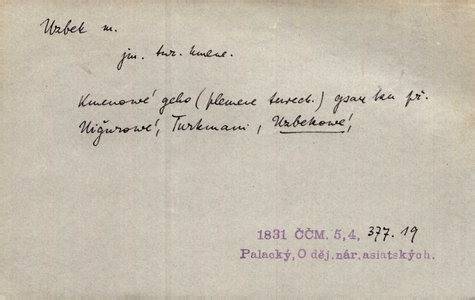 Uzbek m.
jm. tur. kmene.
Kmenowé geho (plemene tureck.) gsau ku př.
Uigurowé, Turkmani, Uzbekowé,
1831 ČČM. 5,4, 377.19
Palacký, O děj. nár. asiatských.